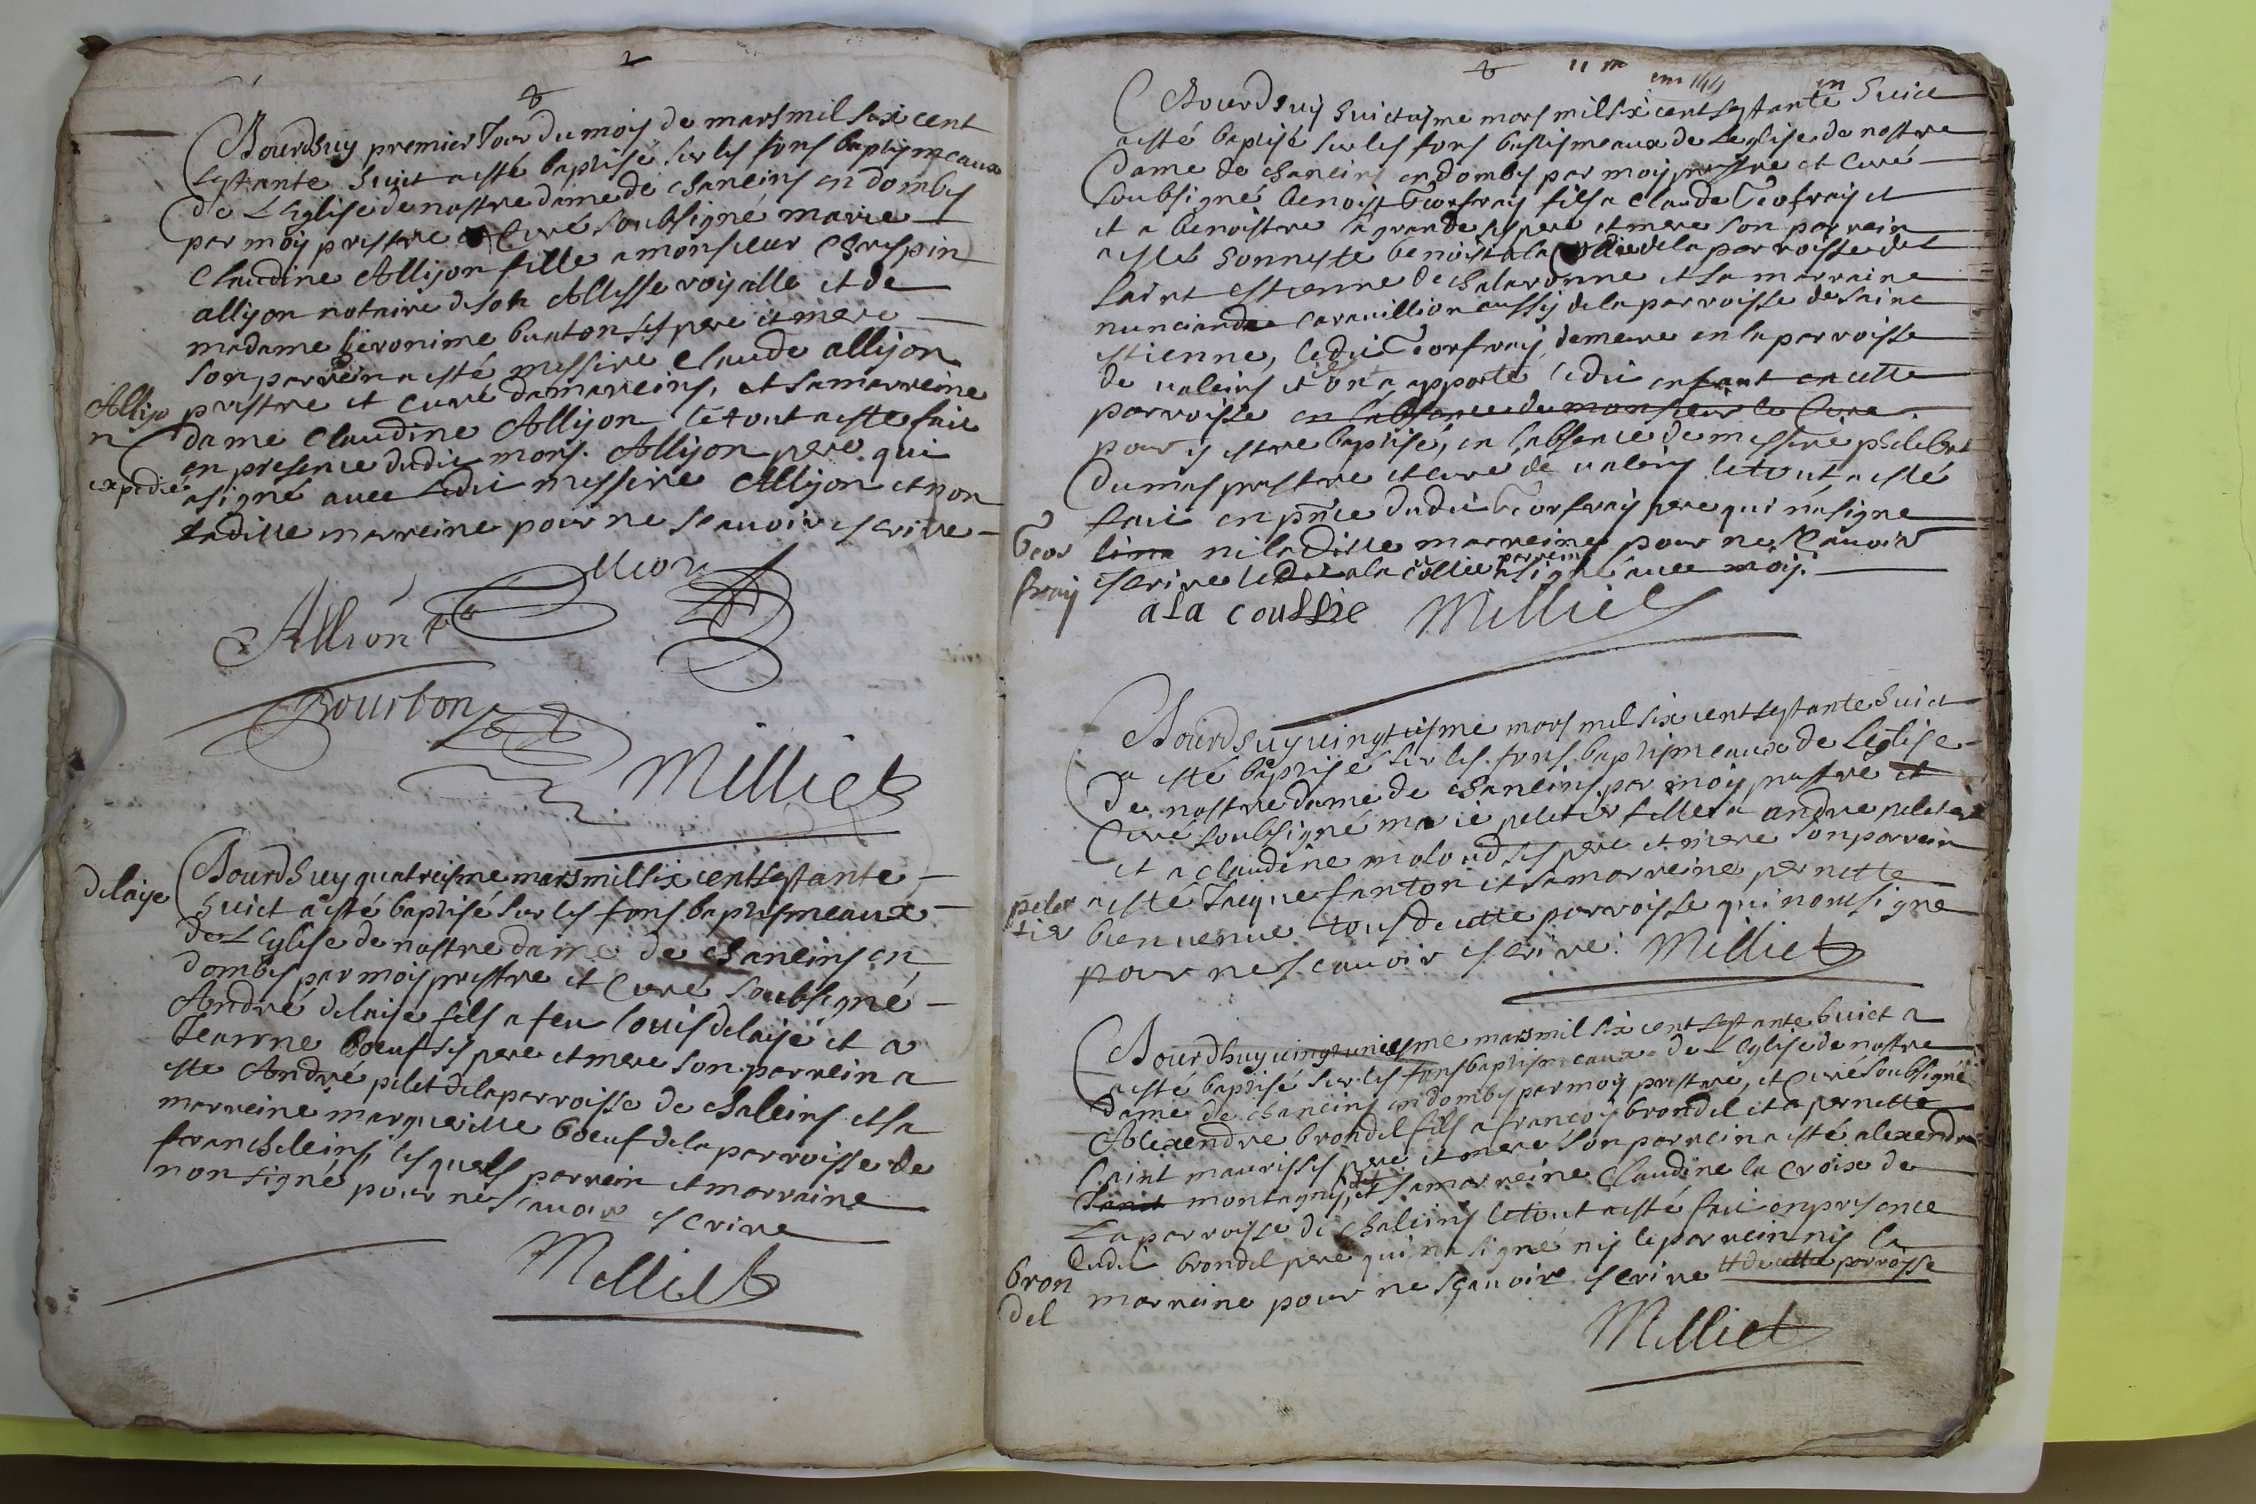 2
Allijo
n
expedié
Aourdhuy premier Jour du mois de mars mil six cent
septante huict a esté baptisé sur les fons baptismeaux
de L'Eglise de nostre dame de chaneins en dombes
par moy prestre et Curé soubsigné marie
Claudine Allijon fille a monsieur Chrispin
allijon notaire de son Altesse royalle et de
madame hieronime buaton ses pere et mere
son parrein a esté messire Claude allijon
prestre et curé damareins, et sa marreine
dame Claudine Allijon le tout a esté faict
en presence dudit mons. Allijon pere qui
a signé avec ledit messire Allijon et non
laditte marreine pour ne scavoir escrire
Allion
Bourbon
Milliet
delaye
Aourdhuy quatreisme mars mil six cent septante
huict a esté baptisé sur les fons baptismeaux
de L'Eglise de nostre dame de chaneins en
dombes par moy prestre et Curé soubsigné
André delaije fils a feu louis delaije et a
Jeanne boeuf ses pere et mere son parrein a
este André pelet de la parroisse de chaleins et sa
marreine margueritte boeuf de la parroisse de
francheleins, lesquels parrein et marraine
non signé pour ne scauoir escrire
Milliet
Geof
fray
Aourdhuy huictiesme mars mil six cent septante huict
a esté baptisé sur les fons baptismeaux de L'eglise de nostre
dame de chaneins en dombes par moy prestre et Curé
soubsigné benoist Geoffray fils a claude Geofray et
et a benoistre la grande ses pere et mere son parrein
a esté honneste benoist a la de la parroisse de
saint estienne de chalaronne et sa marraine
cavaillion aussy de la parroisse de saint
estienne, ledit Geoffray demeure en la parroisse
de valeins et on a apporté ledit enfant en cette
parroisse en l'absence de monsieur le Curé
pour y estre baptisé, en l'absence de messire philibert
dumas prestre et curé de valeins le tout a esté
fait en pnce dudit Geoffray pere qui n'a signe
ni laditte marreine pour ne scauoir
escrire ledit a la collie parrein a signé avec moy.
a la coullie Milliet
pelet
tier
Aourdhuy vingtiesme mars mil six cent septante huict
a esté baptisé sur les fons baptismeaux de L'eglise
de nostre dame de chaneins par moy prestre et
Curé soubsigné marie peletier fille a andre peletier
et a claudine molond ses pere et mere son parrein
a esté Jacque fanton et sa marreine pernette
bienvenue tous de cette parroisse qui n'ont signe
pour ne scauoir escrire. Milliet
bron
del
Aourdhuy vingt unieme mars mil six cent septante huict a
a esté baptisé sur les fons baptismeaux de L'Eglise de nostre
dame de chaneins en dombes par moy prestre, et Curé soubsigné
Alexendre brondel fils a françoy brondel et a pernette
saint mauris ses pere et mere son parrein a esté alexendre
montagny, et sa marreine Claudine la Croix de
La parroisse de chaleins le tout a esté fait en presence
dudit brondel pere qui n'a signé ny le parrein ny la
marreine pour ne sçauoir escrire # de cette parroisse
Milliet